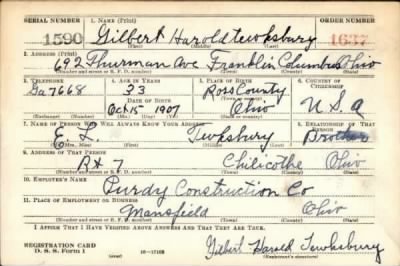 SERIAL NUMBER 1. NAME (Print) ORDER NUMBER
1590 Gilbert Harold Tewksbury 1637
(First) (Middle) (Last)
2. ADDRESS (Print)
692 Thurman Ave Franklin Columbus Ohio
(Number and street or R. F. D. number) (Town) (County) (State)
3. TELEPHONE 4. AGE IN YEARS 5. PLACE OF BIRTH 6. COUNTRY OF CITIZENSHIP
Ga 7668 33 Ross County
DATE OF BIRTH
Oct 15 1907 Ohio U.S.A
(Mo.) (Day) (Yr.) (State or country)
7. NAME OF PERSON WHO WILL ALWAYS KNOW YOUR ADDRESS 8. RELATIONSHIP OF THAT PERSON
E L. Tewksbury Brother
(Mr., Mrs., Miss) (First) (Middle) (Last)
9. ADDRESS OF THAT PERSON
Rt 7 Chilicothe Ohio
(Number and street or R. F. D. number) (Town) (County) (State)
10. EMPLOYER'S NAME
Purdy Construction Co
11. PLACE OF EMPLOYMENT OR BUSINESS
Mansfield Ohio
(Number and street or R. F. D. number) (Town) (County) (State)
I AFFIRM THAT I HAVE VERIFIED ABOVE ANSWERS AND THAT THEY ARE TRUE.
REGISTRATION CARD
D. S. S. Form 1 (Over) 16-17105 Gilbert Harold Tewksbury
(Registrant's signature)